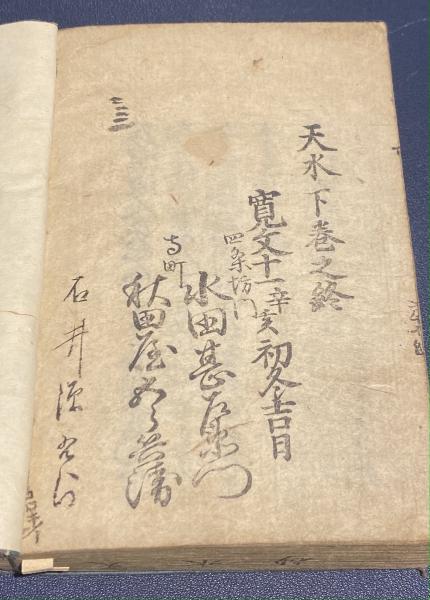 天水下巻之終
寛文十一辛亥初冬吉日
四条坊門
水田甚左衛門
寺町
秋田屋五郎兵衛
石井
三三